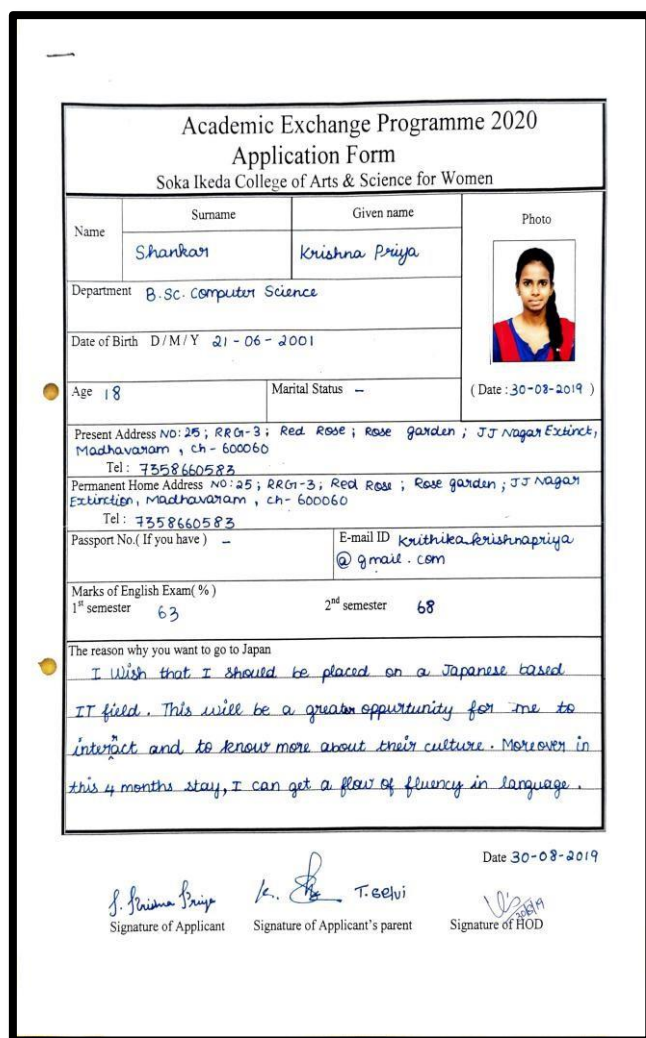 Academic Exchange Programme 2020
Application Form
Soka Ikeda College of Arts & Science for Women
Name
Surname
Given name
Photo
Shankar
Krishna Priya
Department B.Sc. Computer Science
Date of Birth D/M/Y 21-06-2001
Age 18
Marital Status –
(Date: 30-08-2019)
Present Address NO:25; RRG-3; Red Rose; Rose garden; JJ Nagar Extinct,
Madhavaram, ch-600060
Tel: 7358660583
Permanent Home Address NO:25; RRG-3; Red Rose; Rose garden; JJ Nagar
Extinction, Madhavaram, ch-600060
Tel: 7358660583
Passport No.( If you have ) –
E-mail ID krithika.krishnapriya
@gmail.com
Marks of English Exam( % )
1st semester 63
2nd semester 68
The reason why you want to go to Japan
I Wish that I should be placed on a Japanese based
IT field. This will be a greater oppurtunity for me to
interact and to know more about their culture. Moreover in
this 4 months stay, I can get a flow of fluency in language.
Date 30-08-2019
S. Krishna Priya
K.
T. Selvi
Signature of Applicant
Signature of Applicant's parent
Signature of HOD